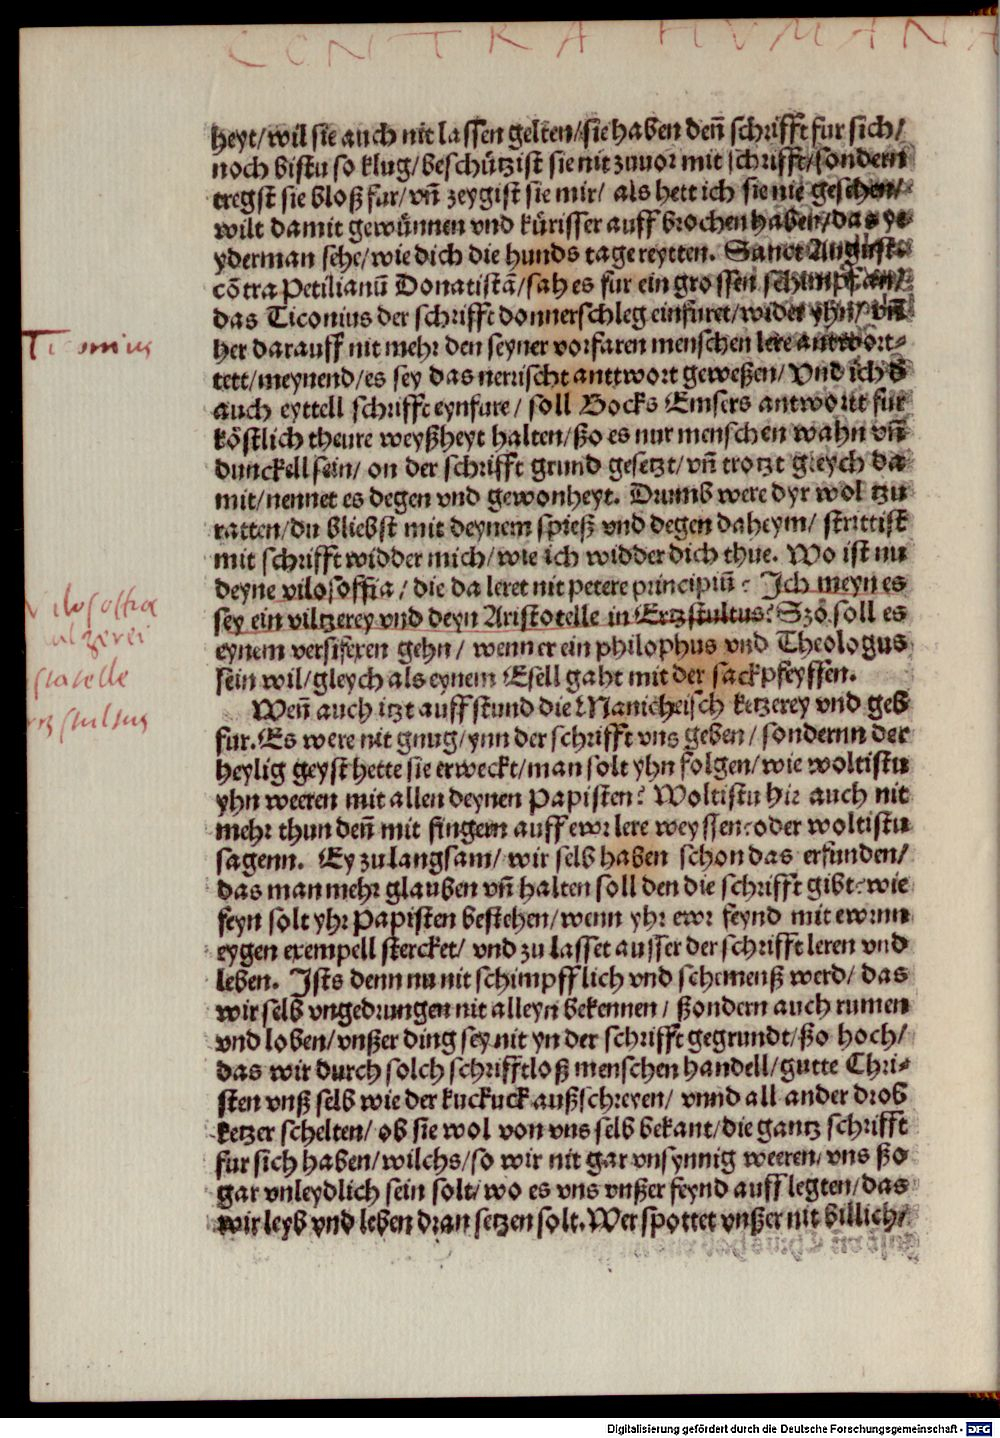 CONTRA HVMANA
heyt/ wil sie auch nit lassen gelten/ sie haben den̄ schrifft fur sich/
noch bistu so klug/ beschützist sie nit zuuor mit schrifft/ sondern
tregst sie bloß fur/ vn̄ zeygist sie mir/ als hett ich sie nie gesehen/
wilt damit gewünnen vnd kürisser auff brochen haben/ das ye-
yderman sehe/ wie dich die hunds tage reytten. Sanct August.
cōtra Petilianū Donatistā/ sah es fur ein grossen schimpf an/
das Ticonius der schrifft donnerschleg einfuret/ wider yhn/ vn̄
her darauff nit mehr den seyner vorfaren menschen lere antwort-
Ticonius
tett/ meynend/ es sey das nerrischt anttwort geweßen/ Vnd ich ß
auch eyttell schrifft eynfure/ soll Bocks Emsers antwortt fur
köstlich theure weyßheyt halten/ ßo es nur menschen wahn vn̄
dunckell sein/ on der schrifft grund gesetzt/ vn̄ trotzt gleych da
mit/ nennet es degen vnd gewonheyt. Drumb were dyr wol tzu
ratten/ du bliebst mit deynem spieß vnd degen daheym/ strittist
mit schrifft widder mich/ wie ich widder dich thue. Wo ist nu
deyne vilosoffia/ die da leret nit petere principiū? Ich meyn es
vilosoffia
sey ein viltzerey vnd deyn Aristotelle in Ertzstultus? Szo soll es
vilzerei
eynem versifexen gehn/ wenn er ein philophus vnd Theologus
sein wil/ gleych als eynem Esell gaht mit der sackpfeyffen.
stotelle
Wen̄ auch itzt auffstund die Manicheisch ketzerey vnd geb
rtz stultus
fur. Es were nit gnug/ ynn der schrifft vns geben/ sondernn der
heylig geyst hette sie erweckt/ man solt yhn folgen/ wie woltistu
yhn weeren mit allen deynen Papisten? Woltistu hie auch nit
mehr thun den̄ mit fingern auff ewr lere weyssen? oder woltistu
sagenn. Ey zu langsam/ wir selb haben schon das erfunden/
das man mehr glauben vn̄ halten soll den die schrifft gibt? wie
feyn solt yhr Papisten bestehen/ wenn yhr ewr feynd mit ewrm
eygen exempell stercket/ vnd zu lasset ausser der schrifft leren vnd
leben. Ists denn nu nit schimpfflich vnd schemenß werd/ das
wir selb vngedrungen nit alleyn bekennen/ ßondern auch rumen
vnd loben/ vnßer ding sey nit yn der schrifft gegrundt/ ßo hoch/
das wir durch solch schrifftloß menschen handell/ gutte Chri-
sten vnß selb wie der kuckuck außschreyen/ vnnd all ander drob
ketzer schelten/ ob sie wol von vns selb bekant/ die gantz schrifft
fur sich haben/ wilchs/ so wir nit gar vnsynnig weeren/ vns ßo
gar vnleydlich sein solt/ wo es vns vnßer feynd aufflegten/ das
wir leyb vnd leben dran setzen solt. Wer spottet vnßer nit billich/
Digitalisierung gefördert durch die Deutsche Forschungsgemeinschaft - DFG